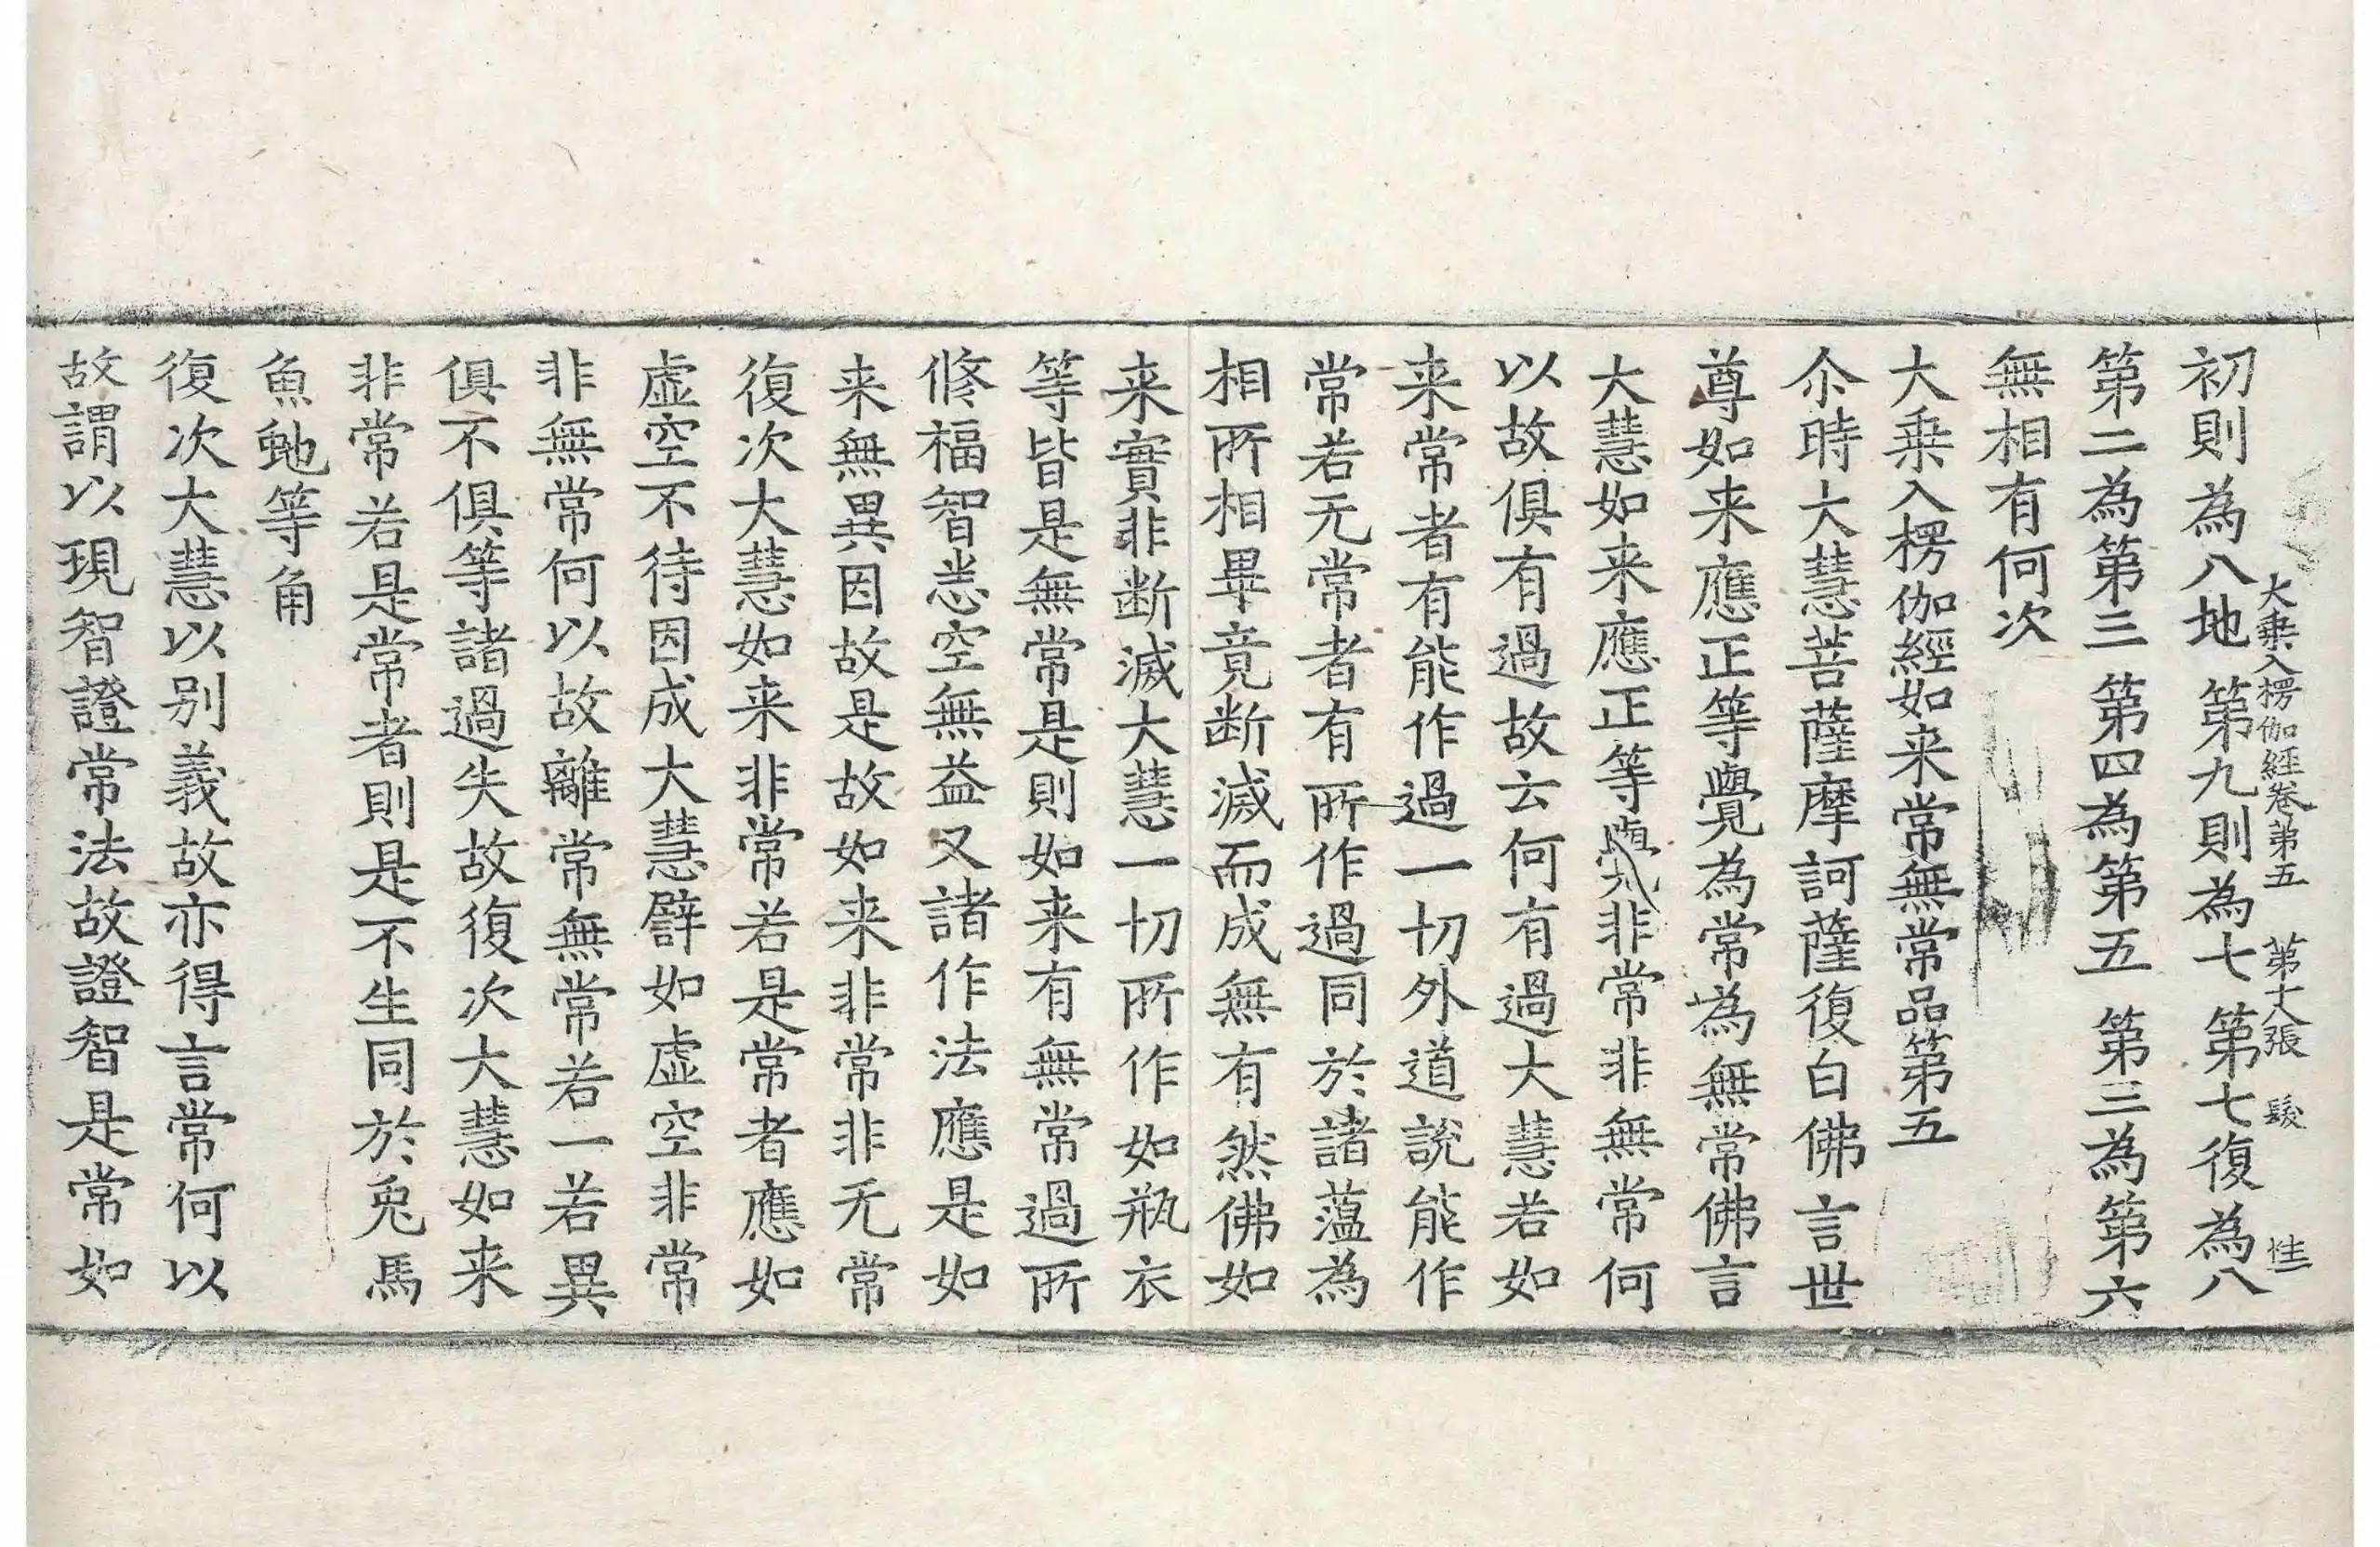 初則為八地第九則為七第七復為八
大乗入楞伽經卷第五 第十六張 髮
第二為第三第四為第五第三為第六
無相有何次
大乗入楞伽經如来常無常品第五
尒時大慧菩薩摩訶薩復白佛言世
尊如来應正等覺為常為無常佛言
大慧如来應正等覺非常非無常何
以故俱有過故云何有過大慧若如
来常者有能作過一切外道說能作
常若无常者有所作過同於諸薀為
相所相畢竟断滅而成無有然佛如
来實非断滅大慧一切所作如瓶衣
等皆是無常是則如来有無常過所
修福智悉空無益又諸作法應是如
来無異因故是故如来非常非无常
復次大慧如来非常若是常者應如
虚空不待因成大慧譬如虚空非常
非無常何以故離常無常若一若異
俱不俱等諸過失故復次大慧如来
非常若是常者則是不生同於兎馬
魚虵等角
復次大慧以别義故亦得言常何以
故謂以現智證常法故證智是常如